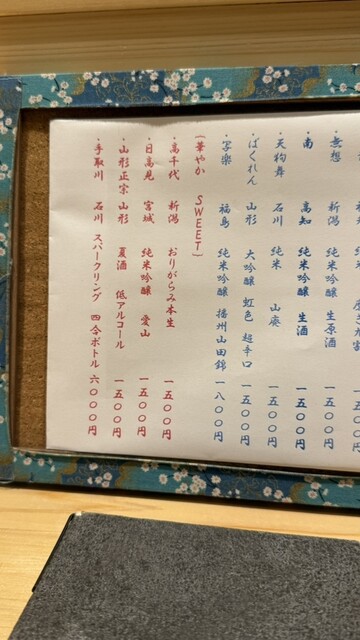 ・無想 新潟 純米吟醸 生原酒 一五〇〇円
・南 高知 純米吟醸 生酒 一五〇〇円
・天狗舞 石川 純米 山廃 一五〇〇円
・ばくれん 山形 大吟醸 虹色 超辛口 一五〇〇円
・写楽 福島 純米吟醸 播州山田錦 一八〇〇円
(華やか SWEET)
・高千代 新潟 おりがらみ本生 一五〇〇円
・日高見 宮城 純米吟醸 愛山 一五〇〇円
・山形正宗 山形 夏酒 低アルコール 一五〇〇円
・手取川 石川 スパークリング 四合ボトル 六〇〇〇円